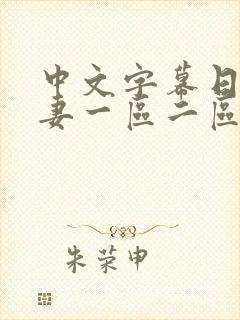 中文字幕日
妻一區二區
朱荣申